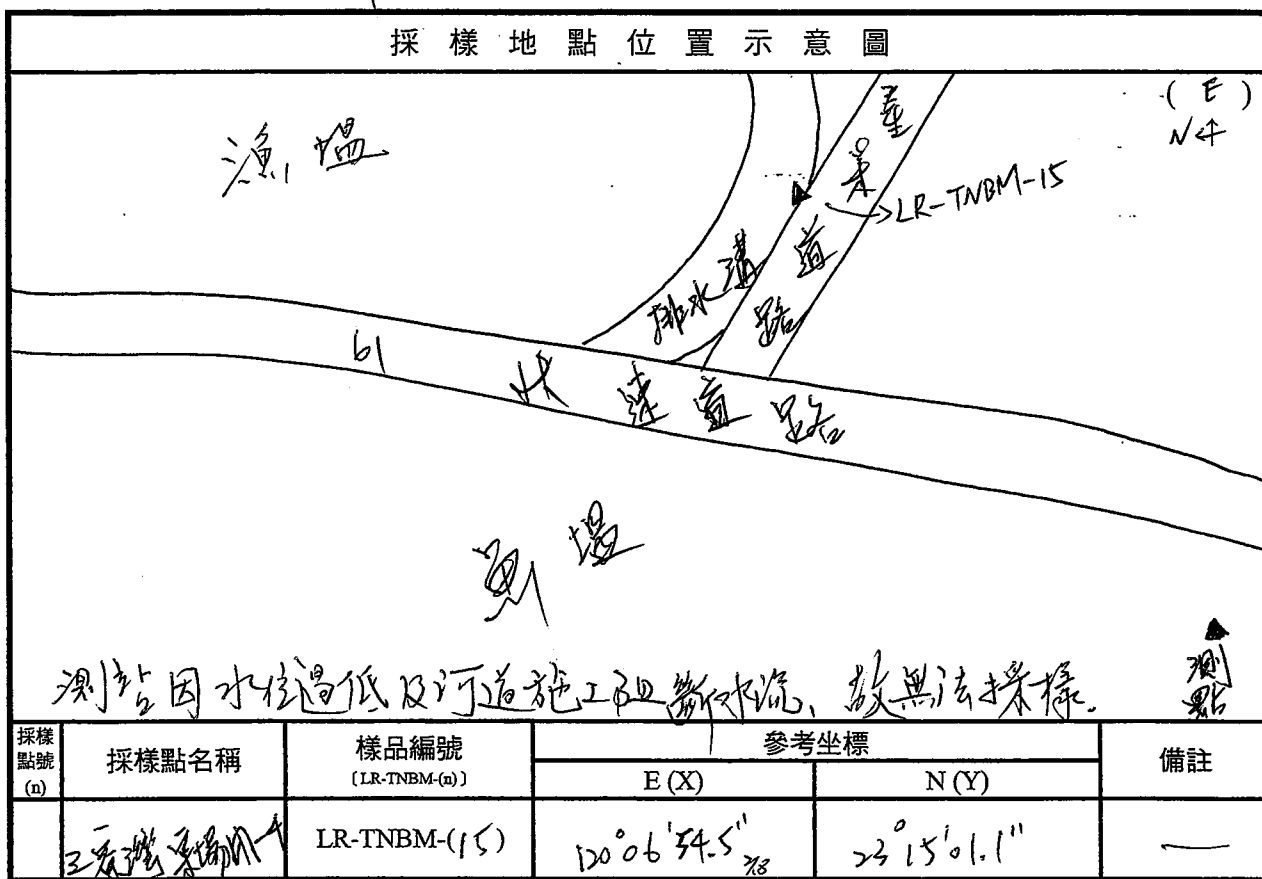 採樣地點位置示意圖
( E )
N
漁塭
產業道路
LR-TNBM-15
排水溝
61
快速道路
魚塭
測站因水位過低及河道施工阻斷水流、故無法採樣.
測點
採樣點號(n) 採樣點名稱 樣品編號 [LR-TNBM-(n)] 參考坐標 E (X) N (Y) 備註
LR-TNBM-(15) 120°06'54.5" 23°15'01.1" —